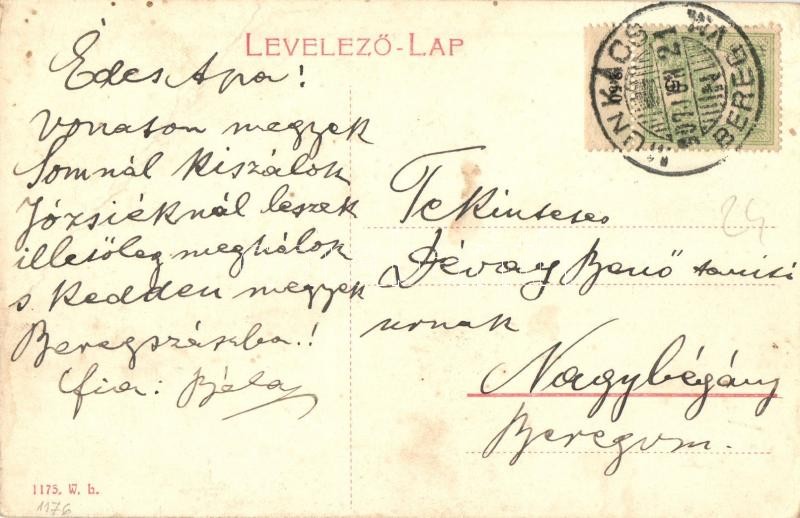 LEVELEZŐ-LAP
Édes Apa!
vonaton megyek
Somnál kiszálok
Józsiéknál leszek
illetőleg meghálok
s kedden megyek
Beregszászba.!
fia: Béla
MUNKÁCS
BEREG VM
Tekintetes
Dévay Benő tanító
urnak
Nagybégány
Beregvm.
24
1175. W. b.
1176